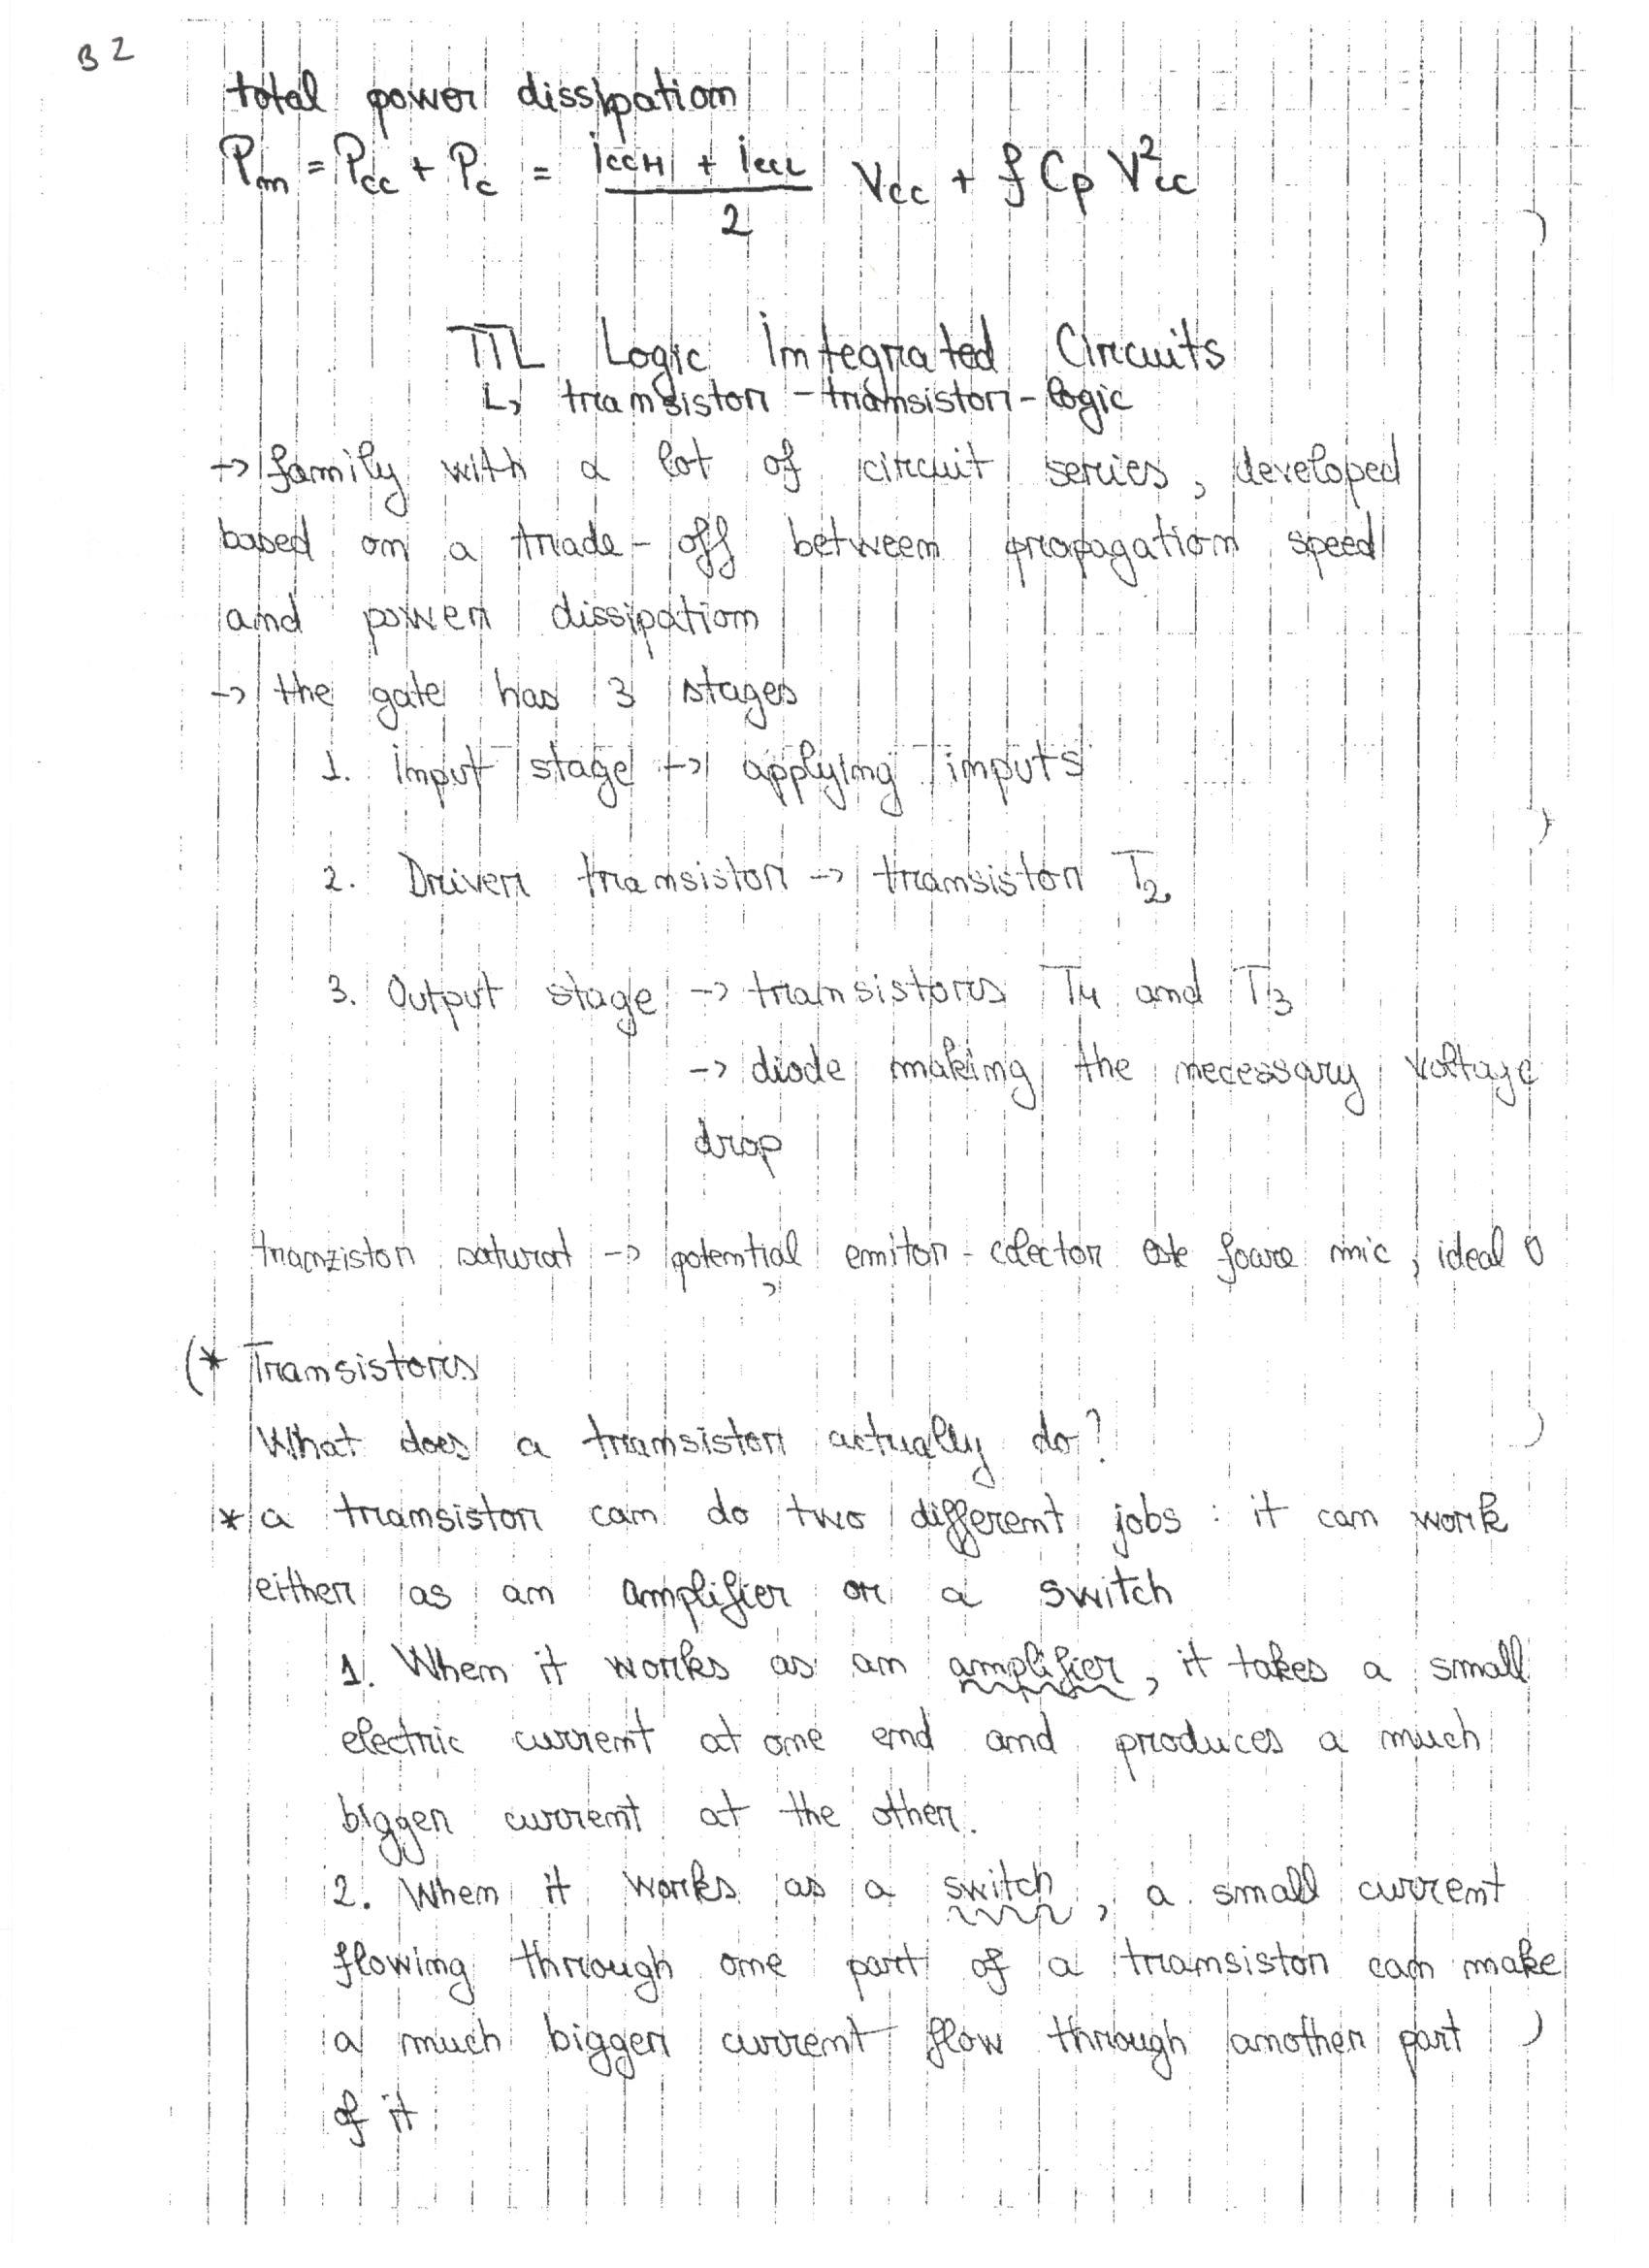 B2
total power dissipation
Pm = Pcc + Pc = (iccH + iccL)/2 Vcc + f Cp V²cc
TTL Logic Integrated Circuits
↳ transistor-transistor-logic
-> family with a lot of circuit series, developed
based on a trade-off between propagation speed
and power dissipation
-> the gate has 3 stages
1. Input stage -> applying inputs
2. Driver transistor -> transistor T2
3. Output stage -> transistors T4 and T3
-> diode making the necessary voltage
drop
tranzistor saturat -> potențial emitor-colector este foare mic, ideal 0
(* Transistors
What does a transistor actually do?
* a transistor can do two different jobs: it can work
either as an amplifier or a switch
1. When it works as an amplifier, it takes a small
electric current at one end and produces a much
bigger current at the other.
2. When it works as a switch, a small current
flowing through one part of a transistor can make
a much bigger current flow through another part
of it